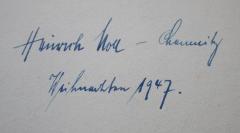 Heinrich Moll – Chemnitz
Weihnachten 1947.